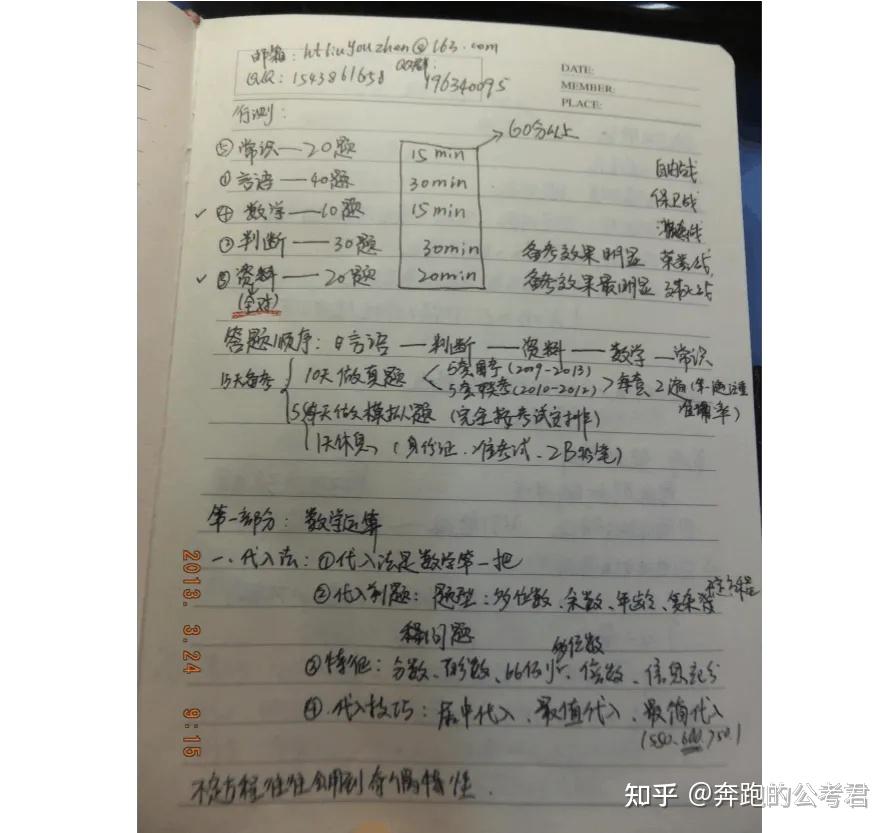 邮箱: htliuyouzhen@163.com
QQ: 1543861658 QQ群: 196340095
DATE:
MEMBER:
PLACE:
行测:
60分以上
⑤ 常识——20题 15min 自由战
① 言语——40题 30min 保卫战
✓ ④ 数学——10题 15min
② 判断——30题 30min 备考效果明显
✓ ③ 资料——20题 20min 备考效果最明显
(全对)
答题顺序: 言语——判断——资料——数学—常识
15天备考 10天做真题 5套国考(2009-2013)
5套联考(2010-2012) 每套2遍
准确率)
天做模拟题 (完全按考试安排)
1天休息 (身份证、准考试、2B铅笔)
第一部分: 数学运算
一、代入法: ①代入法是数学第一把
②代入剩题: 题型: 多位数、余数、年龄、 不定方程
问题 多位数
③特征: 分数、 比例、倍数、信息充分
④代入技巧: 居中代入、最值代入、最简代入
(550.600.750.)
不定方程往往会用到奇偶特性.
2013. 3.24 9:15
知乎 @奔跑的公考君